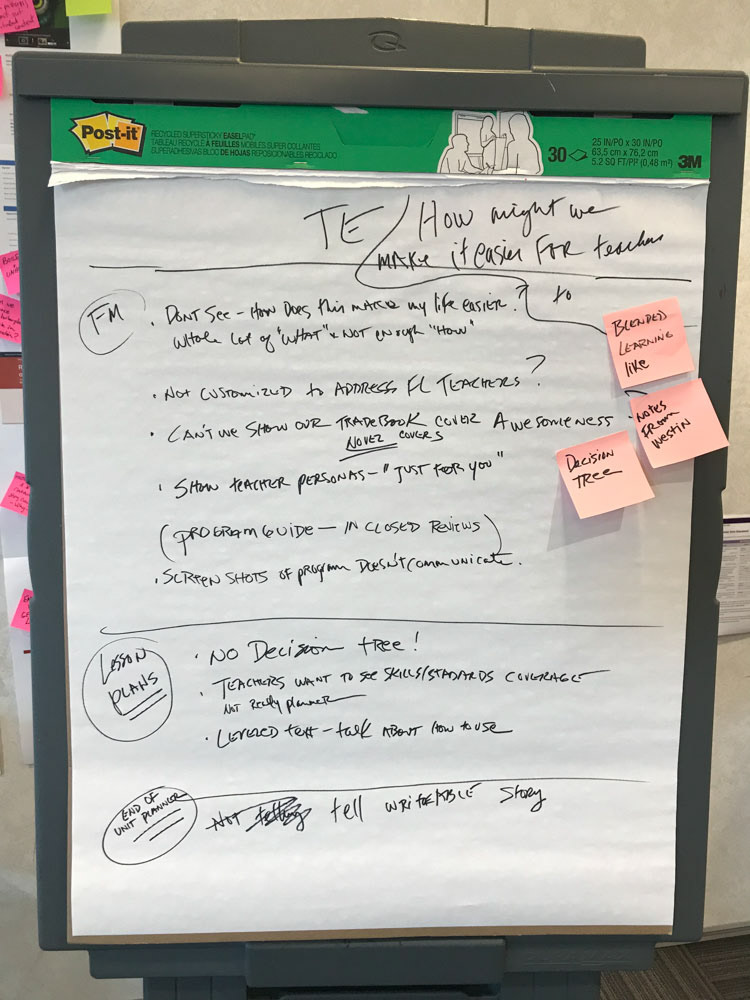 Post-it
RECYCLED SUPERSTICKY EASEL PAD
TABLEAU RECYCLÉ À FEUILLES MOBILES SUPER COLLANTES
SUPERADHESIVAS BLOC DE HOJAS REPOSICIONABLES RECICLADO
30
25 IN/PO x 30 IN/PO
63,5 cm x 76,2 cm
5.2 SQ FT/PI² (0,48 m²)
3M
TE / How might we
MAKE it easier FOR teachers
to
BLENDED
LEARNING
like
NOTES
FROM
Westin
DECISION
TREE
FM
• DONT SEE - HOW DOES this MAKE my life EASIER?
WHOLE Lot of "WHAT" & NOT enough "HOW"
• NOT CUSTOMIZED to ADDRESS FL TEACHERS?
• CAN'T WE SHOW OUR TRADEBOOK COVER AWESOMENESS
NOVEL COVERS
• SHOW TEACHER PERSONAS - "JUST FOR YOU"
(PROGRAM GUIDE - IN CLOSED REVIEWS)
• SCREEN SHOTS OF PROGRAM DOESN'T COMMUNICATE.
LESSON
PLANS
• NO DECISION tREE!
• TEACHERS WANT to SEE SKILLS/STADARDS COVERAGE
NOT REALLY planner
• LEVERED text - talk ABOUT HOW to USE
END OF
UNIT PLANNER
NOT tell WRITEABLE Story